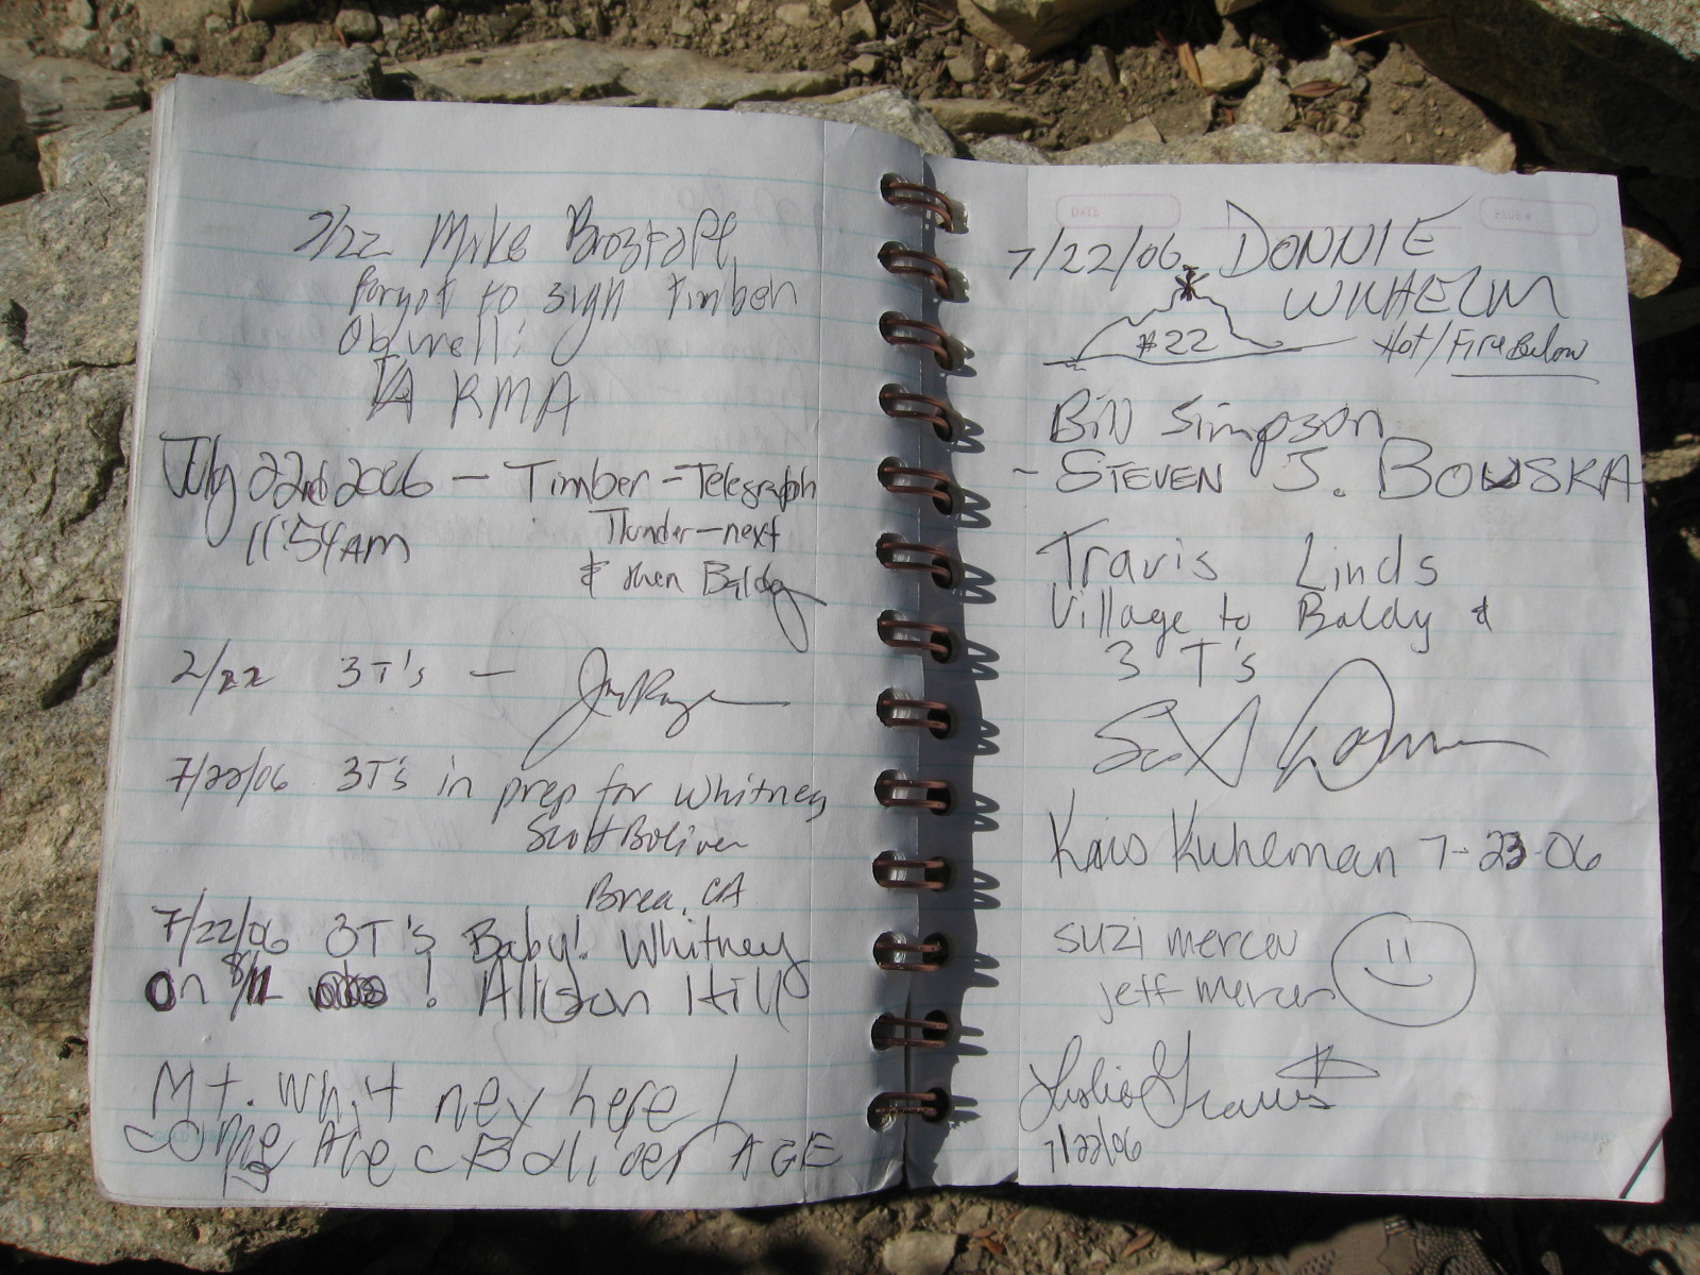 7/22 Mike
forgot to sign timber
RMA
July 22nd 2006 - Timber - Telegraph
11:54 AM Thunder - next
& then Baldy
2/22 3T's -
7/22/06 3T's in prep for Whitney
Scott Boliver
Brea, CA
7/22/06 3T's Baby! Whitney
on ! Allison Hill
Mt. Whitney here I
come Boliver AGE
DATE
7/22/06 DONNIE
WILHELM
#22 Hot/Fire Below
Bill Simpson
- STEVEN J. BOUSKA
Travis Linds
Village to Baldy &
3 T's
Kuheman 7-23-06
suzi mercer
jeff mercer
Leslie
7/22/06